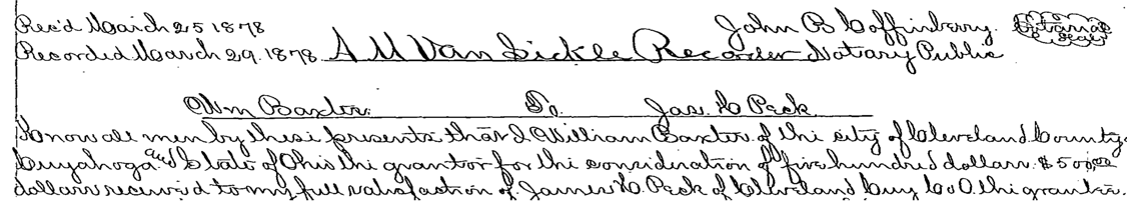 Rec'd March 25 1878 John B Coffinberry Notarial Seal
Recorded March 29. 1878 A M Van Sickle Recorder Notary Public
Wm Baxter. To. Jas. H Peck
Know all men by these presents that I William Baxter of the city of Cleveland County
Cuyahoga and State of Ohio the grantor for the consideration of five hundred dollars $500,00
dollars received to my full satisfaction of James H. Peck of Cleveland Cuy Co O. the grantee.